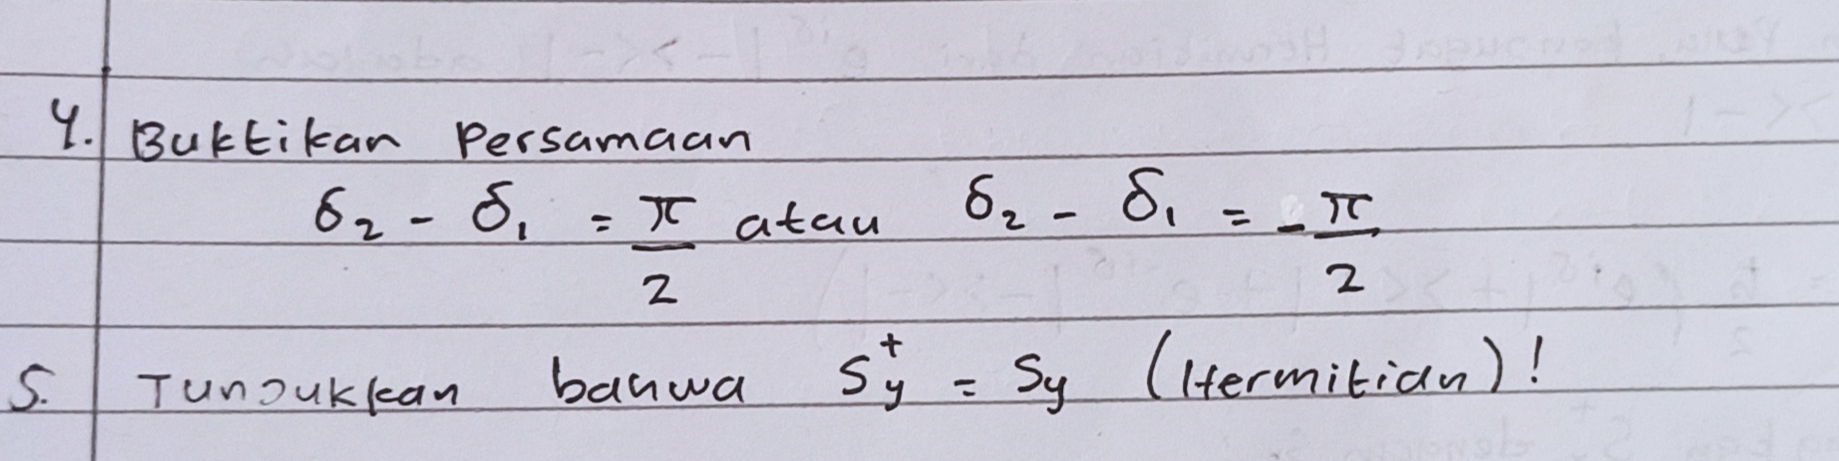 4. Buktikan Persamaan
δ₂ - δ₁ = π/2 atau δ₂ - δ₁ = -π/2
5. Tunjukkan bahwa Sy⁺ = Sy (Hermitian)!